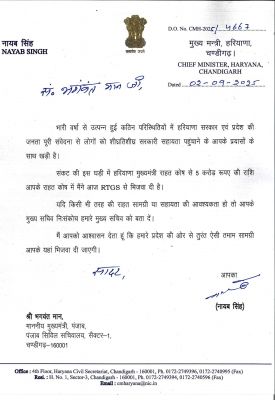 नायब सिंह
NAYAB SINGH
D.O. No. CMH-2025/4667
मुख्य मन्त्री, हरियाणा,
चण्डीगढ़।
CHIEF MINISTER, HARYANA,
CHANDIGARH
Dated 02-09-2025
स. भगवंत मान जी,
भारी वर्षा से उत्पन्न हुई कठिन परिस्थितियों में हरियाणा सरकार एवं प्रदेश की
जनता पूरी संवेदना से लोगों को शीघ्रातिशीघ्र सरकारी सहायता पहुंचाने के आपके प्रयासों के
साथ खड़ी है।
संकट की इस घड़ी में हरियाणा मुख्यमंत्री राहत कोष से 5 करोड़ रूपए की राशि
आपके राहत कोष में मैंने आज RTGS से भिजवा दी है।
यदि किसी भी तरह की राहत सामग्री या सहायता की आवश्यकता हो तो आपके
मुख्य सचिव निःसंकोच हमारे मुख्य सचिव को बता दें।
मैं आपको आश्वासन देता हूं कि हमारे प्रदेश की ओर से तुरंत ऐसी तमाम सामग्री
आपके यहां भिजवा दी जाएगी।
सादर,
आपका
(नायब सिंह)
श्री भगवंत मान,
माननीय मुख्यमंत्री, पंजाब,
पंजाब सिविल सचिवालय, सैक्टर-1,
चण्डीगढ़-160001
Office : 4th Floor, Haryana Civil Secretariat, Chandigarh - 160001, Ph. 0172-2749396, 0172-2740995 (Fax)
Resi. : H. No. 1, Sector-3, Chandigarh - 160001, Ph. 0172-2749394, 0172-2740596 (Fax)
Email : cmharyana@nic.in